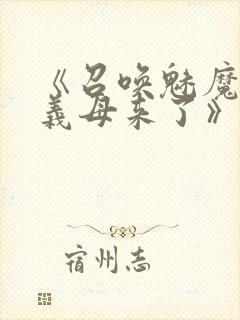 《召唤魅魔
義母来了》
宿州志